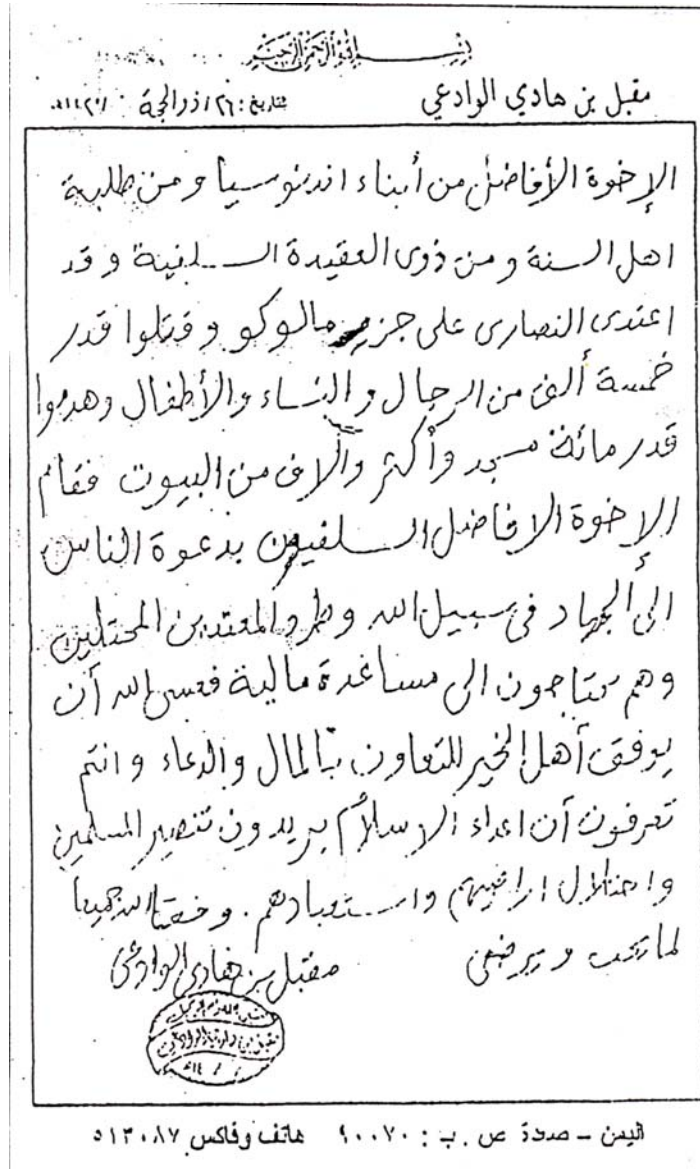 بسم الله الرحمن الرحيم
مقبل بن هادي الوادعي تاريخ : ٢٦ / ذو الحجة / ١٤٢٠هـ
الإخوة الأفاضل من أبناء اندنوسيا ومن طلبة
اهل السنة ومن ذوى العقيدة السلفية وقد
اعتدى النصارى على جزر مالوكو وقتلوا قدر
خمسة ألف من الرجال والنساء والأطفال وهدموا
قدر مائة مسجد وأكثر وآلاف من البيوت فقام
الإخوة الافاضل السلفيون بدعوة الناس
الى الجهاد في سبيل الله وطرد المعتدين المحتلين
وهم محتاجون الى مساعدة مالية فعسى الله أن
يوفق أهل الخير للتعاون بالمال والدعاء وانتم
تعرفون أن اعداء الإسلام يريدون تنصير المسلمين
واحتلال اراضيهم واستعبادهم . وفقنا الله جميعا
لما يحب ويرضى مقبل بن هادي الوادعي
اليمن – صعدة ص . ب : ٩٠٠٧٠ هاتف وفاكس ٥١٣٠٨٧